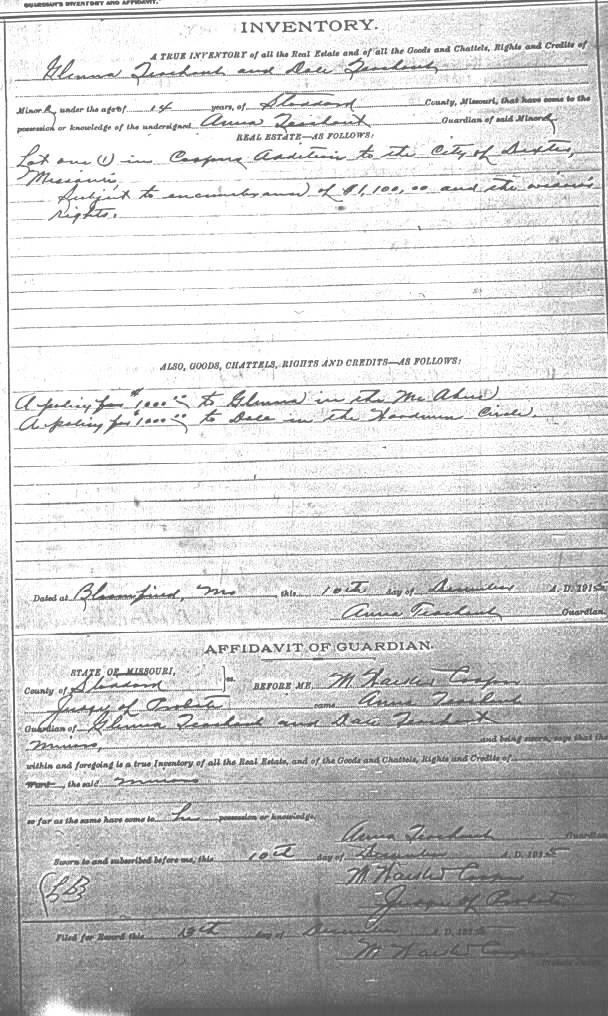 GUARDIAN'S INVENTORY AND AFFIDAVIT.
INVENTORY.
A TRUE INVENTORY of all the Real Estate and of all the Goods and Chattels, Rights and Credits of
Glenna and Dale
Minors under the age of 14 years, of Stoddard County, Missouri, that have come to the
possession or knowledge of the undersigned Anna Guardian of said Minors
REAL ESTATE—AS FOLLOWS:
Lot one (1) in Coopers Addition to the City of Dexter,
Missouri,
Subject to encumbrance of $1,100,00 and the widow's
rights.
ALSO, GOODS, CHATTELS, RIGHTS AND CREDITS—AS FOLLOWS:
A policy for $1000 00 to Glenna in the
A policy for $1000 00 to Dale in the Woodmen Circle.
Dated at Bloomfield, Mo this 10th day of December A. D. 1915
Anna Guardian.
AFFIDAVIT OF GUARDIAN.
STATE OF MISSOURI,
County of Stoddard ss. BEFORE ME, M. Cooper
Judge of Probate came Anna
Guardian of Glenna and Dale
minors, and being sworn, says that the
within and foregoing is a true Inventory of all the Real Estate, and of the Goods and Chattels, Rights and Credits of
the said minors
so far as the same have come to possession or knowledge.
Anna Guardian
Sworn to and subscribed before me, this 10th day of December A. D. 1915
M. Cooper
Judge of Probate
Filed for Record this day of December A. D. 1915
M. Cooper